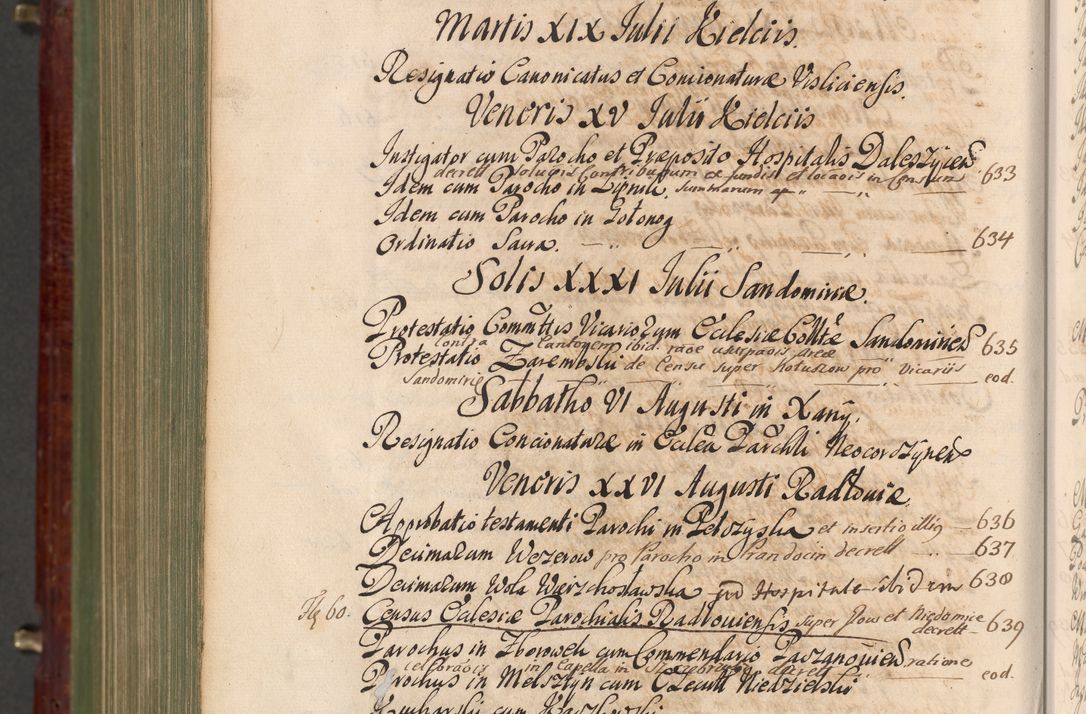 Martis XIX Julii Kielciis.
Resignatio Canonicatus et Concionaturæ Visliciensis.
Veneris XV Julii Kielciis
Instigator cum Parocho et Præposito Hospitalis Daleszÿcen
decrett solutis contributionum ex fundis et locaõis in Censum 633
Idem cum Parocho in Lipnik, summarum
Idem cum Parocho in Gołonog
Ordinatio Sacra. 634
Solis XXXI Julii Sandomiriæ.
Protestatio Commttis Vicariorum Ecclesiæ Colltæ Sandomirien
contra Cantorem ibid. raõe usurpaõis areæ 635
Protestatio Zarembskii de Censu super Rotuszow pro Vicariis
Sandomiriæ eod.
Sabbatho VI Augusti in Xanÿ.
Resignatio Concionaturæ in Ecclea Parchli Neocorczÿnen
Veneris XXVI Augusti Radłoviæ
Approbatio testamenti Parochi in Pelczyska et insertio illig 636
Decimarum Wezerow pro Parocho in Prandocin decrett 637
Decimarum Wola Wierzchosławska pro Hospitale ibidem 638
Flg 60. Census Ecclesiæ Parochialis Radłoviensis super Głow et Niedomice
decrett 639
Parochus in Zborowek cum Commendario Paczanovien ratione
celebraõis in Capella in decrett eod.
Parochus in Melsztyn cum Niedzielski
Kucharski cum